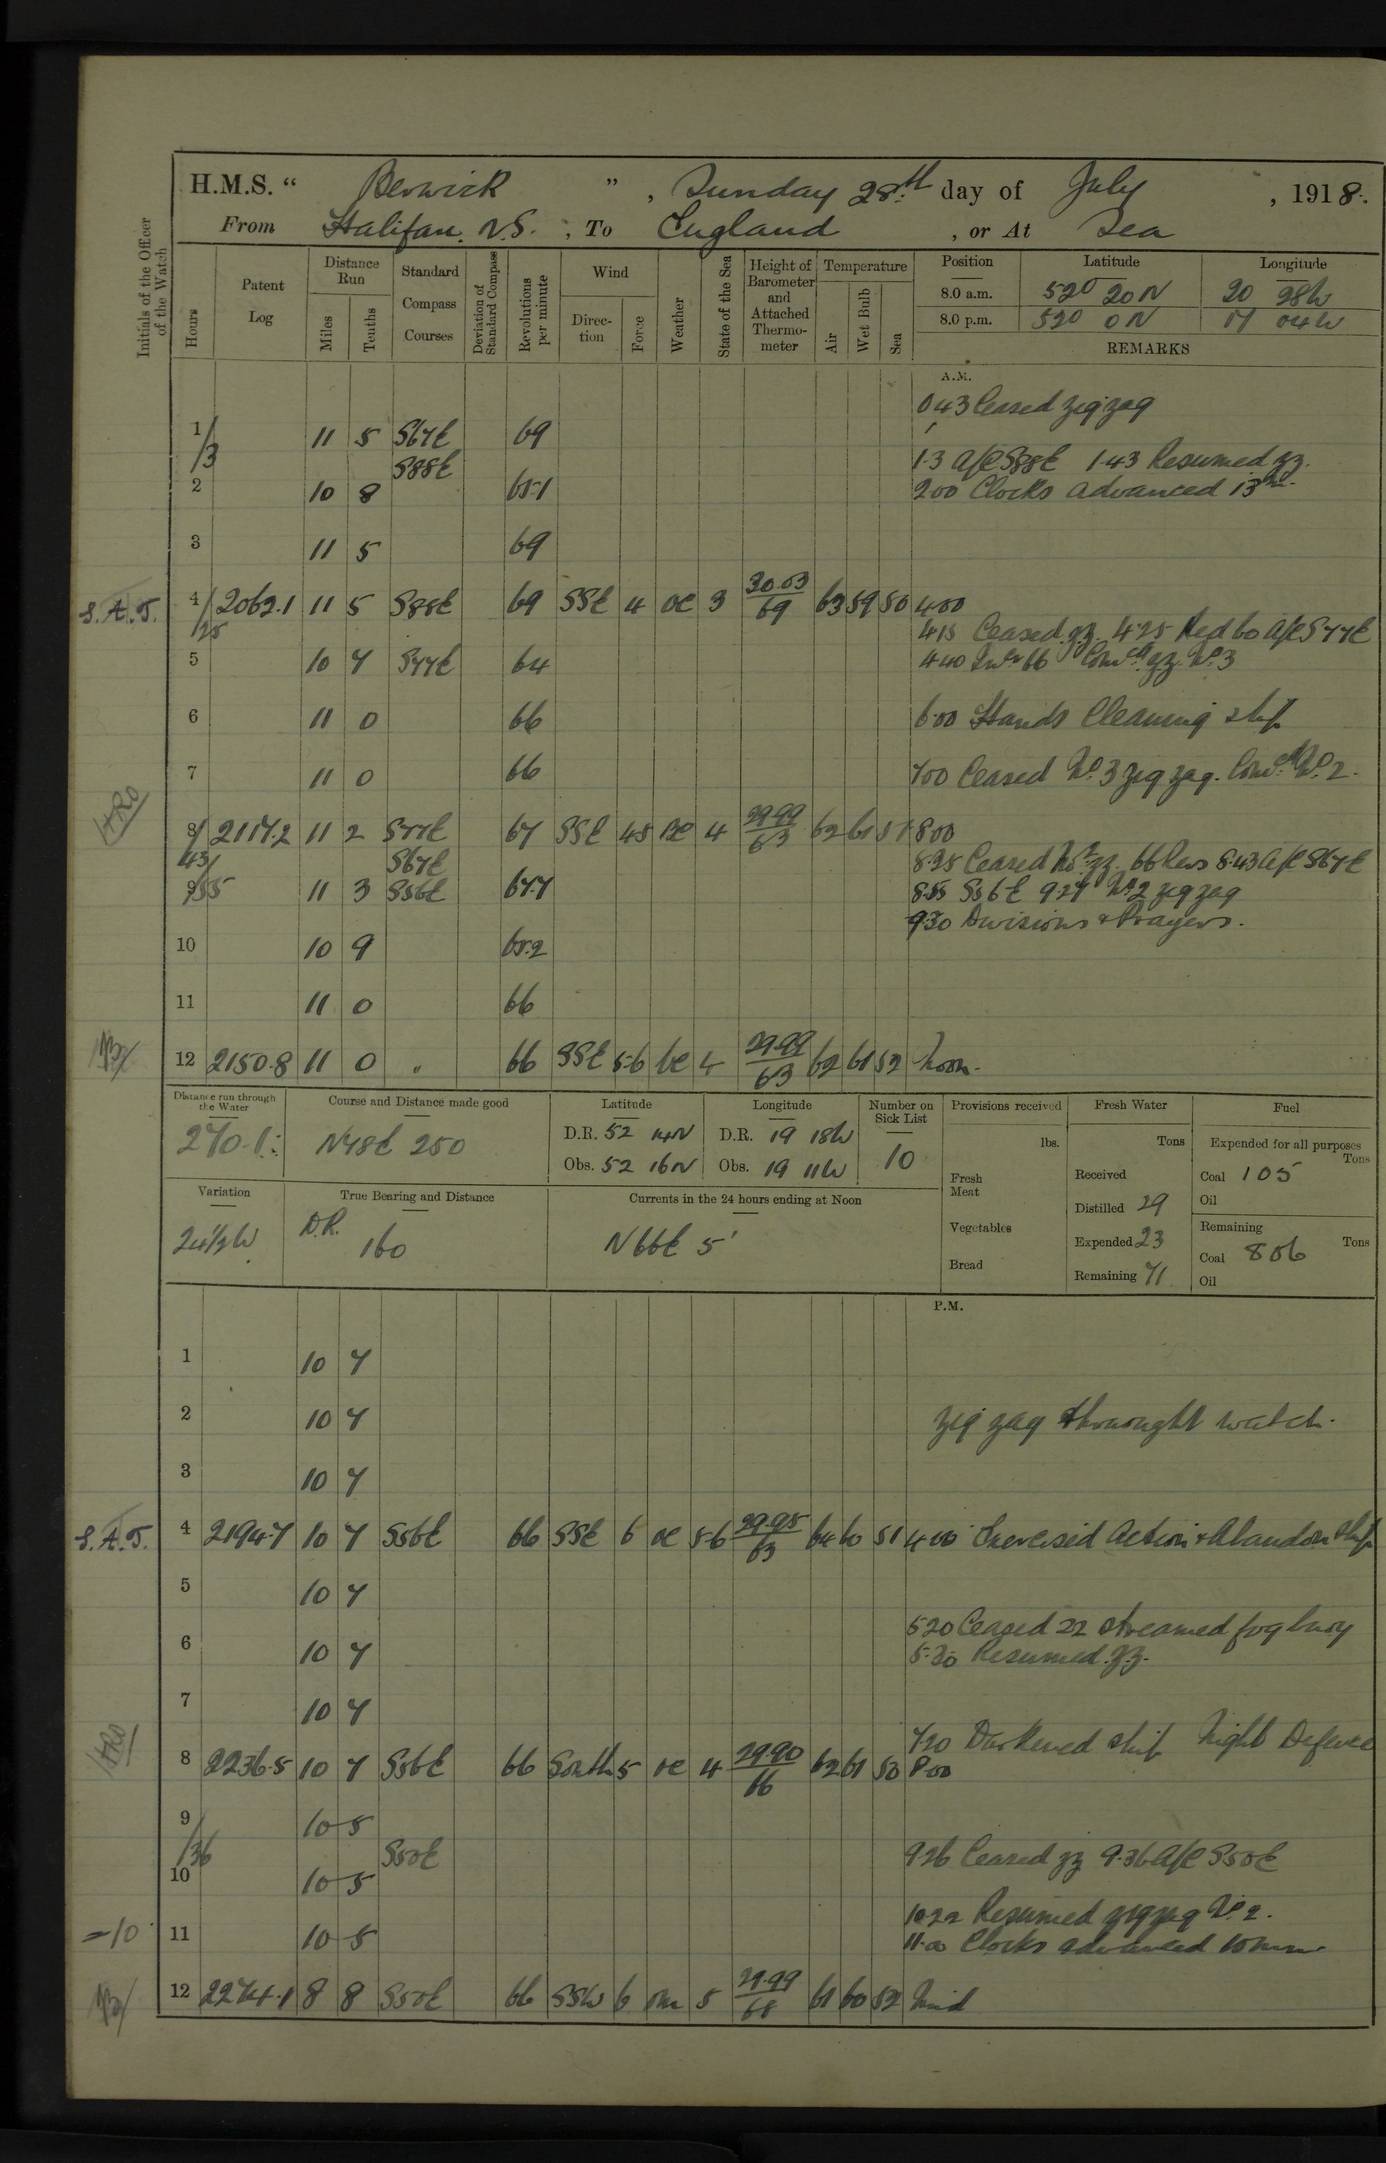 H.M.S. " Berwick ", Sunday 28th day of July, 1918.
From Halifax. N.S., To England, or At Sea
Initials of the Officer of the Watch
Hours
Patent Log
Distance Run
Miles
Tenths
Standard Compass Courses
Deviation of Standard Compass
Revolutions per minute
Wind
Direction
Force
Weather
State of the Sea
Height of Barometer and Attached Thermometer
Temperature
Air
Wet Bulb
Sea
Position Latitude Longitude
8.0 a.m. 52° 20 N 20 28W
8.0 p.m. 52° 0 N 17 04W
REMARKS
A.M.
0.43 Ceased zigzag
1 11 5 S67E 69
/3 S88E 1.3 A/C S88E 1.43 Resumed zz.
2 10 8 65.1 2.00 Clocks advanced 13m.
3 11 5 69
S.A.T. 4 2062.1 11 5 S88E 69 SSE 4 oc 3 30.03/69 63 59 50 4.00
/25 4.15 Ceased zz. 4.25 Red 60 A/C S77E
5 10 7 S77E 64 4.40 Incd 66 Comcd zz. No. 3
6 11 0 66 6.00 Hands Cleaning ship
7 11 0 66 7.00 Ceased No. 3 zig zag. Comcd No. 2.
HRO 8 2117.2 11 2 S77E 67 SSE 4.5 4 29.99/63 62 61 51 8.00
43/ S67E 8.25 Ceased No 2 zz. 66 Revs 8.43 A/C S67E
9/55 11 3 S56E 67.7 8.55 S56E 9.27 No. 2 zig zag
9.30 Divisions & Prayers.
10 10 9 65.2
11 11 0 66
12 2150.8 11 0 " 66 SSE 5-6 bc 4 29.99/63 62 61 52 Noon.
Distance run through the Water
270.1
Course and Distance made good
N78E 250
Latitude
D.R. 52 14N
Obs. 52 16N
Longitude
D.R. 19 18W
Obs. 19 11W
Number on Sick List
10
Provisions received
lbs.
Fresh Meat
Vegetables
Bread
Fresh Water
Tons
Received
Distilled 29
Expended 23
Remaining 71
Fuel
Expended for all purposes
Tons
Coal 105
Oil
Remaining
Tons
Coal 806
Oil
Variation
24½W
True Bearing and Distance
D.R.
160
Currents in the 24 hours ending at Noon
N66E 5'
P.M.
1 10 7
2 10 7 zig zag throught watch.
3 10 7
S.A.T. 4 2194.7 10 7 S56E 66 SSE 6 oc 5-6 29.95/63 64 60 51 4.00 Exercised Action & Abandon Ship
5 10 7
5.20 Ceased zz streamed fog buoy
6 10 7 5.30 Resumed z.z.
7 10 7
7.20 Darkened ship Night Defence
HRO 8 2236.5 10 7 S56E 66 South 5 oc 4 29.90/66 62 61 50 8.00
9 10 5
/36 S50E 9.26 Ceased zz 9.36 A/C S50E
10 10 5
10.22 Resumed zigzag No. 2.
=10 11 10 5 11.00 Clocks advanced 10 mins
12 2274.1 8 8 S50E 66 SSW 6 om 5 29.99/68 61 60 52 Mid